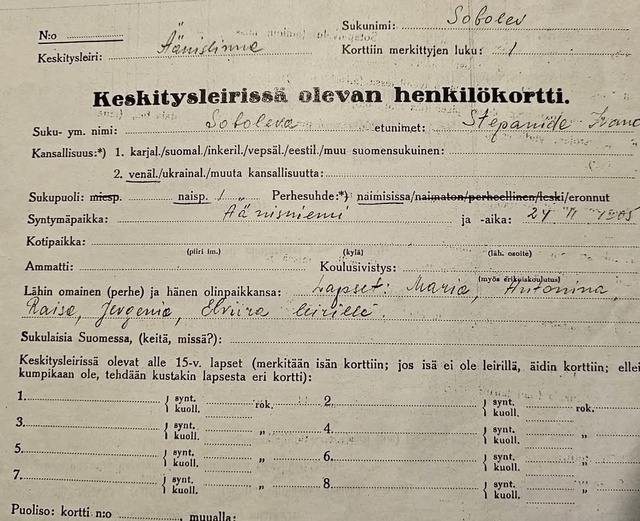 N:o
Sukunimi: Sobolev
Keskitysleiri: Äänislinna
Korttiin merkittyjen luku: 1
Keskitysleirissä olevan henkilökortti.
Suku- ym. nimi: Soboleva etunimet: Stepanide
Kansallisuus:*) 1. karjal./suomal./inkeril./vepsäl./eestil./muu suomensukuinen:
2. venäl./ukrainal./muuta kansallisuutta:
Sukupuoli: miesp. naisp. 1 „ Perhesuhde:*) naimisissa/naimaton/perheellinen/leski/eronnut
Syntymäpaikka: Äänisniemi ja -aika: 24 1905
Kotipaikka:
(piiri im.) (kylä) (läh. osoite)
Ammatti: Koulusivistys:
(myös erikoiskoulutus)
Lähin omainen (perhe) ja hänen olinpaikkansa: Lapset: Maria, Antonina,
Raisa, Jevgenia, Elviira leirillä.
Sukulaisia Suomessa, (keitä, missä?):
Keskitysleirissä olevat alle 15-v. lapset (merkitään isän korttiin; jos isä ei ole leirillä, äidin korttiin; ellei
kumpikaan ole, tehdään kustakin lapsesta eri kortti):
1. synt. kuoll. rok. 2. synt. kuoll. rok.
3. synt. kuoll. „ 4. synt. kuoll. „
5. synt. kuoll. „ 6. synt. kuoll. „
7. synt. kuoll. „ 8. synt. kuoll. „
Puoliso: kortti n:o , muualla: